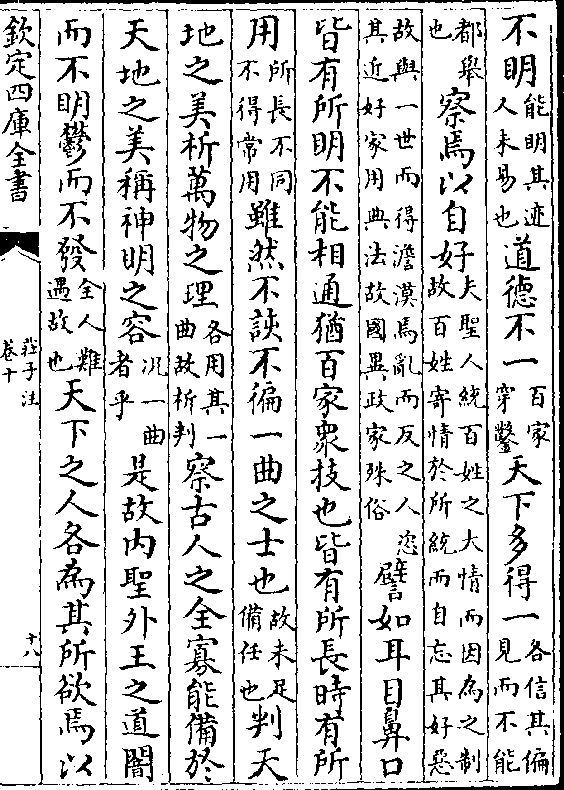 不明能明其迹人未易也道德不一百家穿鑿天下多得一各信其偏見而不能
都舉也察焉以自好夫聖人統百姓之大情而因為之制故百姓寄情於所統而自忘其好惡
故與一世而得澹漠焉亂而反之人恣其近好家用典法故國異政家殊俗譬如耳目鼻口
皆有所明不能相通猶百家衆技也皆有所長時有所
用所長不同不得常用雖然不該不徧一曲之士也故未足備任也判天
地之美析萬物之理各用其一曲故析判察古人之全寡能備於
天地之美稱神明之容況一曲者乎是故内聖外王之道闇
而不明鬱而不發全人難遇故也天下之人各為其所欲焉以
欽定四庫全書
莊子注
卷十
十八